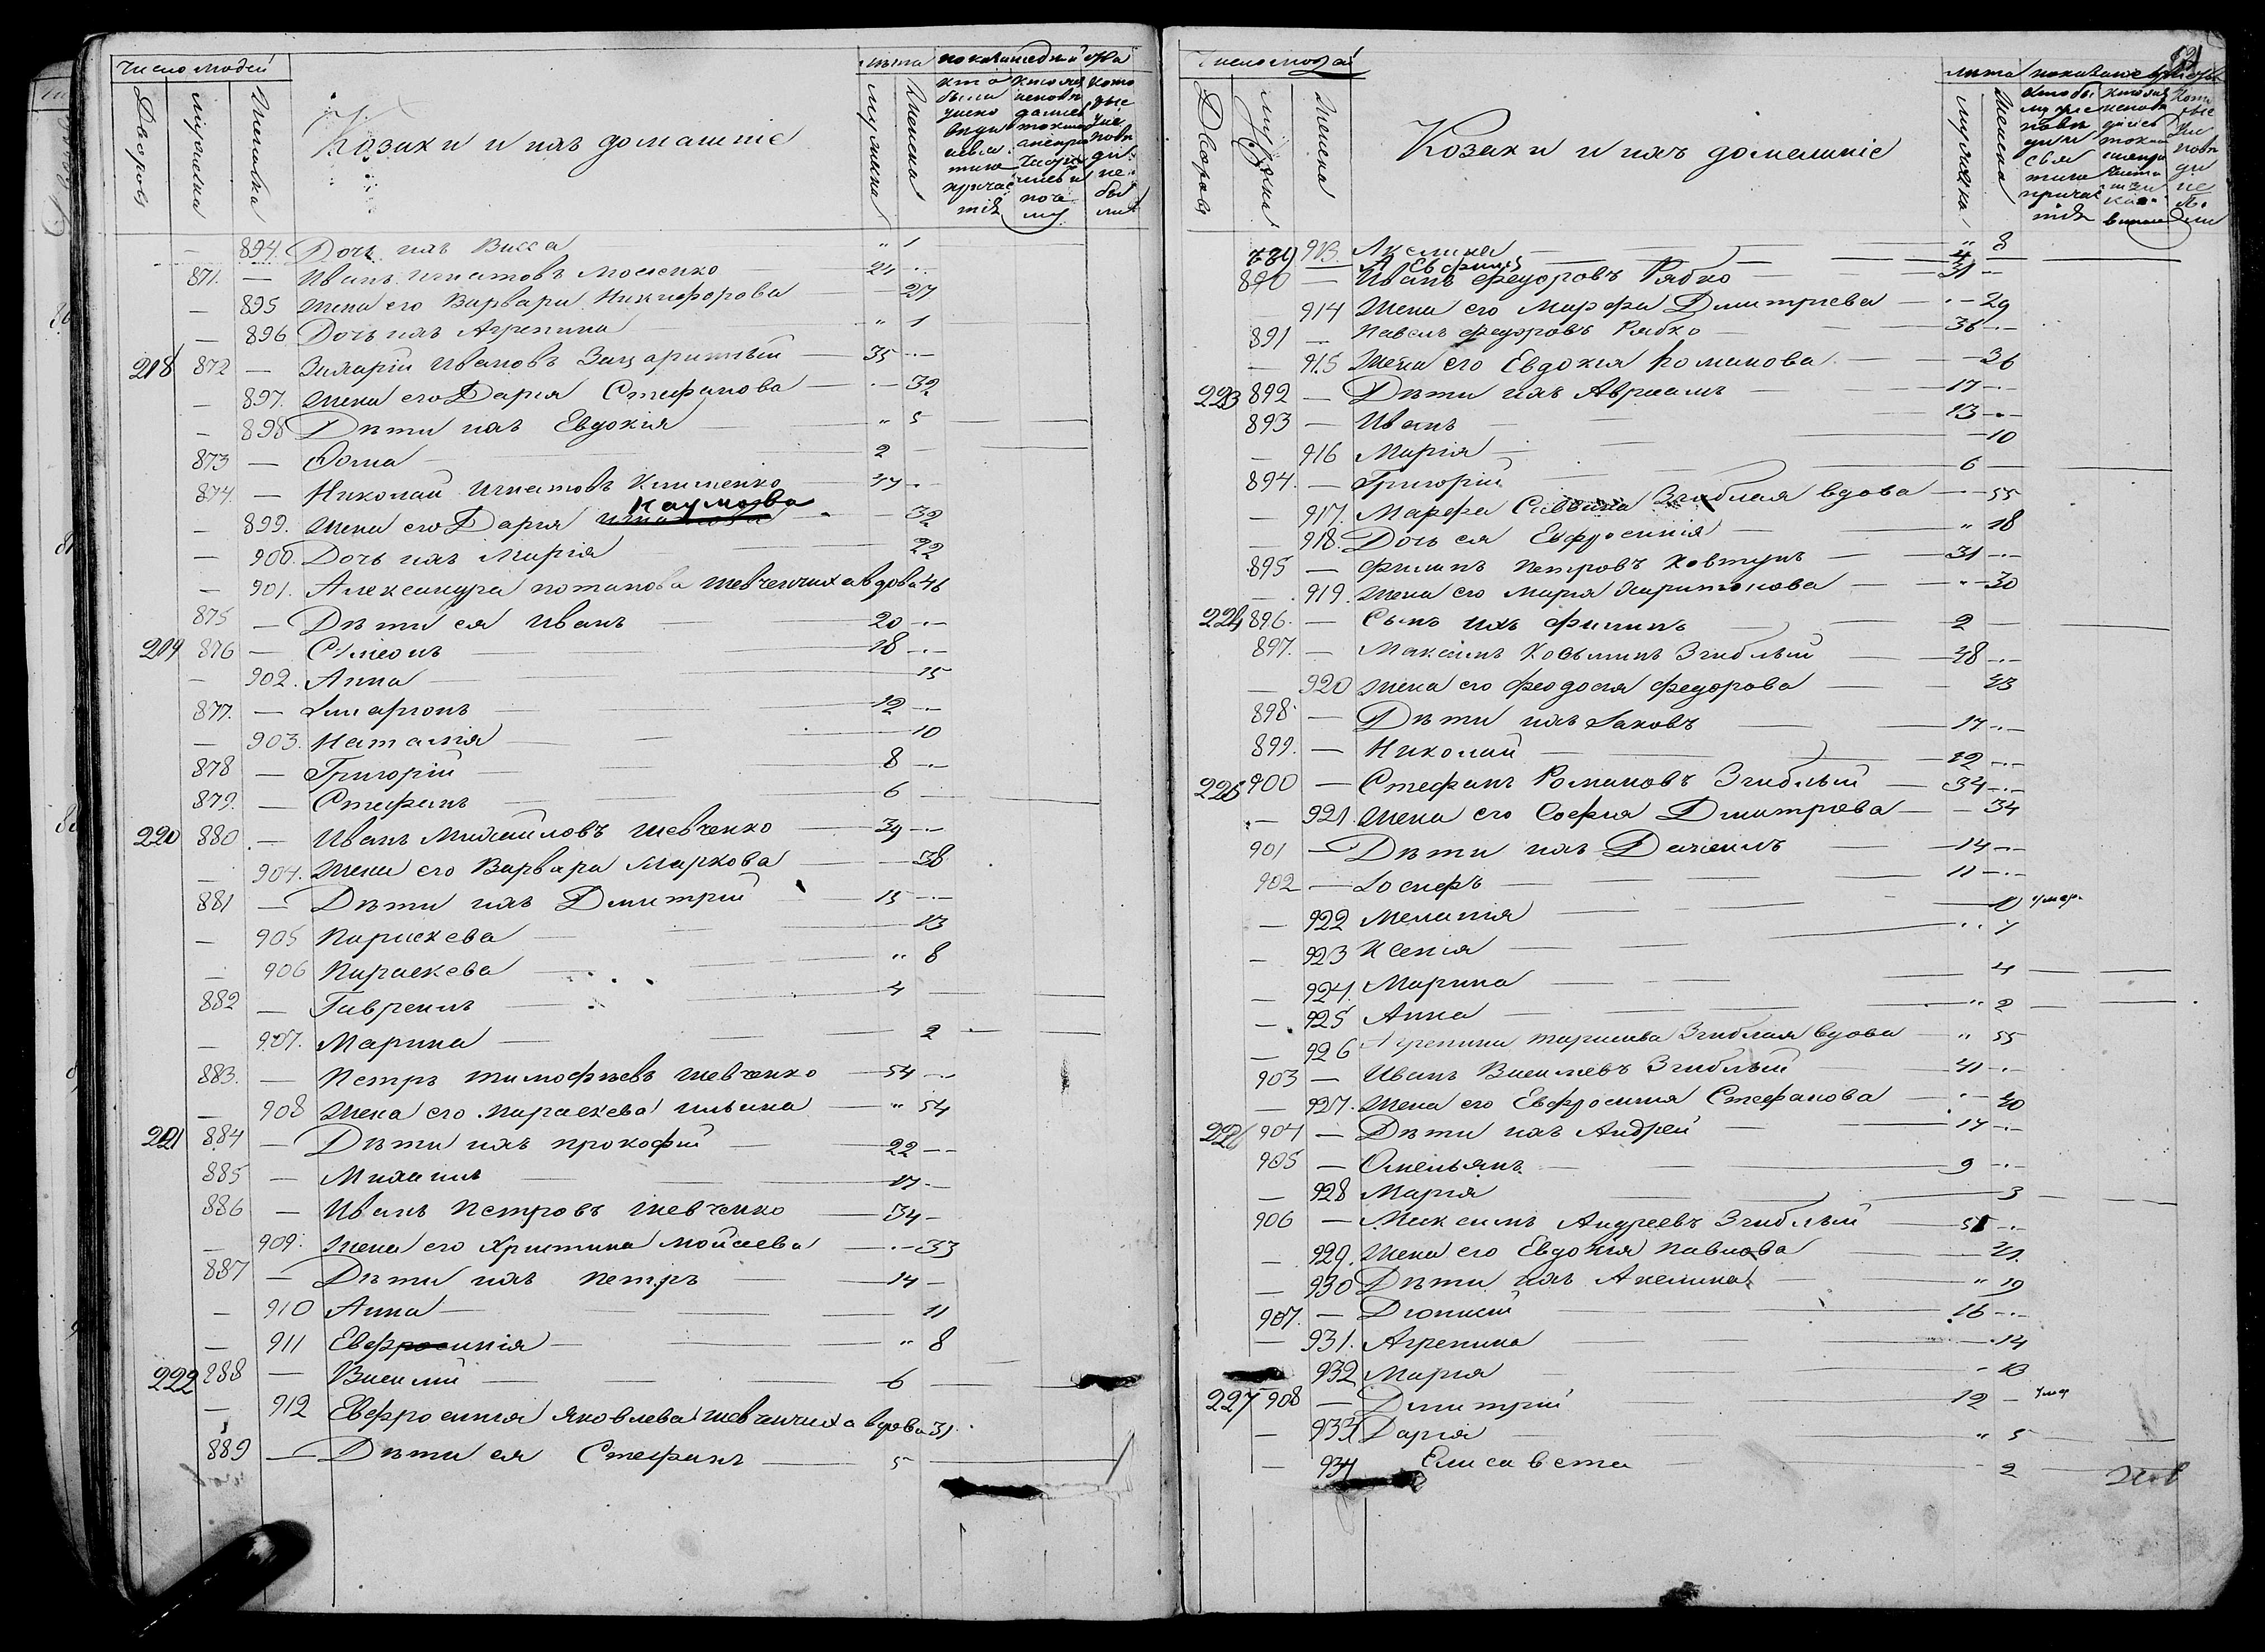 Число людей
Дворовъ
мужска
Женска
Козаки и ихъ домашніе
лѣта
мужска
Женска
894. Дочь ихъ Васса " 1
871. — Иванъ Игнатовъ 21
895 жена его Варвара Никифорова 27
896 Дочь ихъ Агрепина " 1
218 872 — Иларій Ивановъ 35
897. жена его Дарія Стефанова 32
898 Дѣти ихъ Евдокія " 5
873 — Фома 2
874. — Николай Игнатовъ Клименко 47
Наумова
899. жена его Дарія 32
900. Дочь ихъ Марія 22
901. Александра Потапова Шевченчиха вдова 46
875 — Дѣти ея Иванъ 20
219 876 — Сѵмеонъ 18
902. Анна 15
877. — Иларіонъ 12
903. Наталія 10
878 — Григорій 8
879. — Стефанъ 6
220 880. — Иванъ Михайловъ Шевченко 39
904. Жена его Варвара Маркова 38
881 — Дѣти ихъ Димитрій 15
905 Параскева 13
906 Параскева " 8
882 — Гавреилъ 4
907. Марина 2
883. — Петръ Тимофѣевъ Шевченко 54
908 Жена его Параскева Ильина " 54
221 884 — Дѣти ихъ Прокофій 22
885 — Михаилъ 17
886 — Иванъ Петровъ Шевченко 34
909. Жена его Христина Мойсеева 33
887 — Дѣти ихъ Петръ 14
910 Анна 11
911 Евфросинія " 8
222 888 — Василій 6
912 Евфросинія Яковлева Шевченчиха вдова 31
889 — Дѣти ея Стефанъ 5
Число людей
Дворовъ
Женска
Козаки и ихъ домашніе
лѣта
мужска
Женска
913. Акелина " 8
889 — 4
890 — Иванъ Федоровъ Рябко 31
914 Жена его Марфа Дмитріева 29
891 — Павелъ Федоровъ Рябко 36
915 Жена его Евдокія Романова 36
223 892 — Дѣти ихъ Авраамъ 17
893 — Иванъ 13
916 Марія 10
894. — Григорій 6
917. Марфа Саввина Згиблая вдова 55
918. Дочь ея Евфросинія " 18
895 — Филипъ Петровъ Ковтунъ 31
919. Жена его Марія Харитонова 30
224 896. — Сынъ ихъ Филипъ 2
897. — Максимъ Козьминъ Згиблый 48
920 жена его Феодосія Федорова 43
898 — Дѣти ихъ Іаковъ 17
899. — Николай 12
225 900 — Стефанъ Романовъ Згиблый 34
921. Жена его Софія Дмитріева 34
901 — Дѣти ихъ Даніилъ 14
902 — Іосифъ 11
922 Меланія 10 умер.
923 Ксенія 7
924. Марина 4
925 Анна " 2
926 Агрепина Тарасова Згиблая вдова " 55
903 — Иванъ Василіевъ Згиблый 41
927. Жена его Евфросинія Стефанова 40
226 904 — Дѣти ихъ Андрей 14
905 — Омельянъ 9
928 Марія 3
906 — Максимъ Андреевъ Згиблый 51
929. Жена его Евдокія Павлова 41
930 Дѣти ихъ Акелина " 19
907. — Діонисій 16
931. Агрепина 14
932 Марія 13
227 908 — Димитрій 12 умер
933 Дарія " 5
934 Елисавета 2